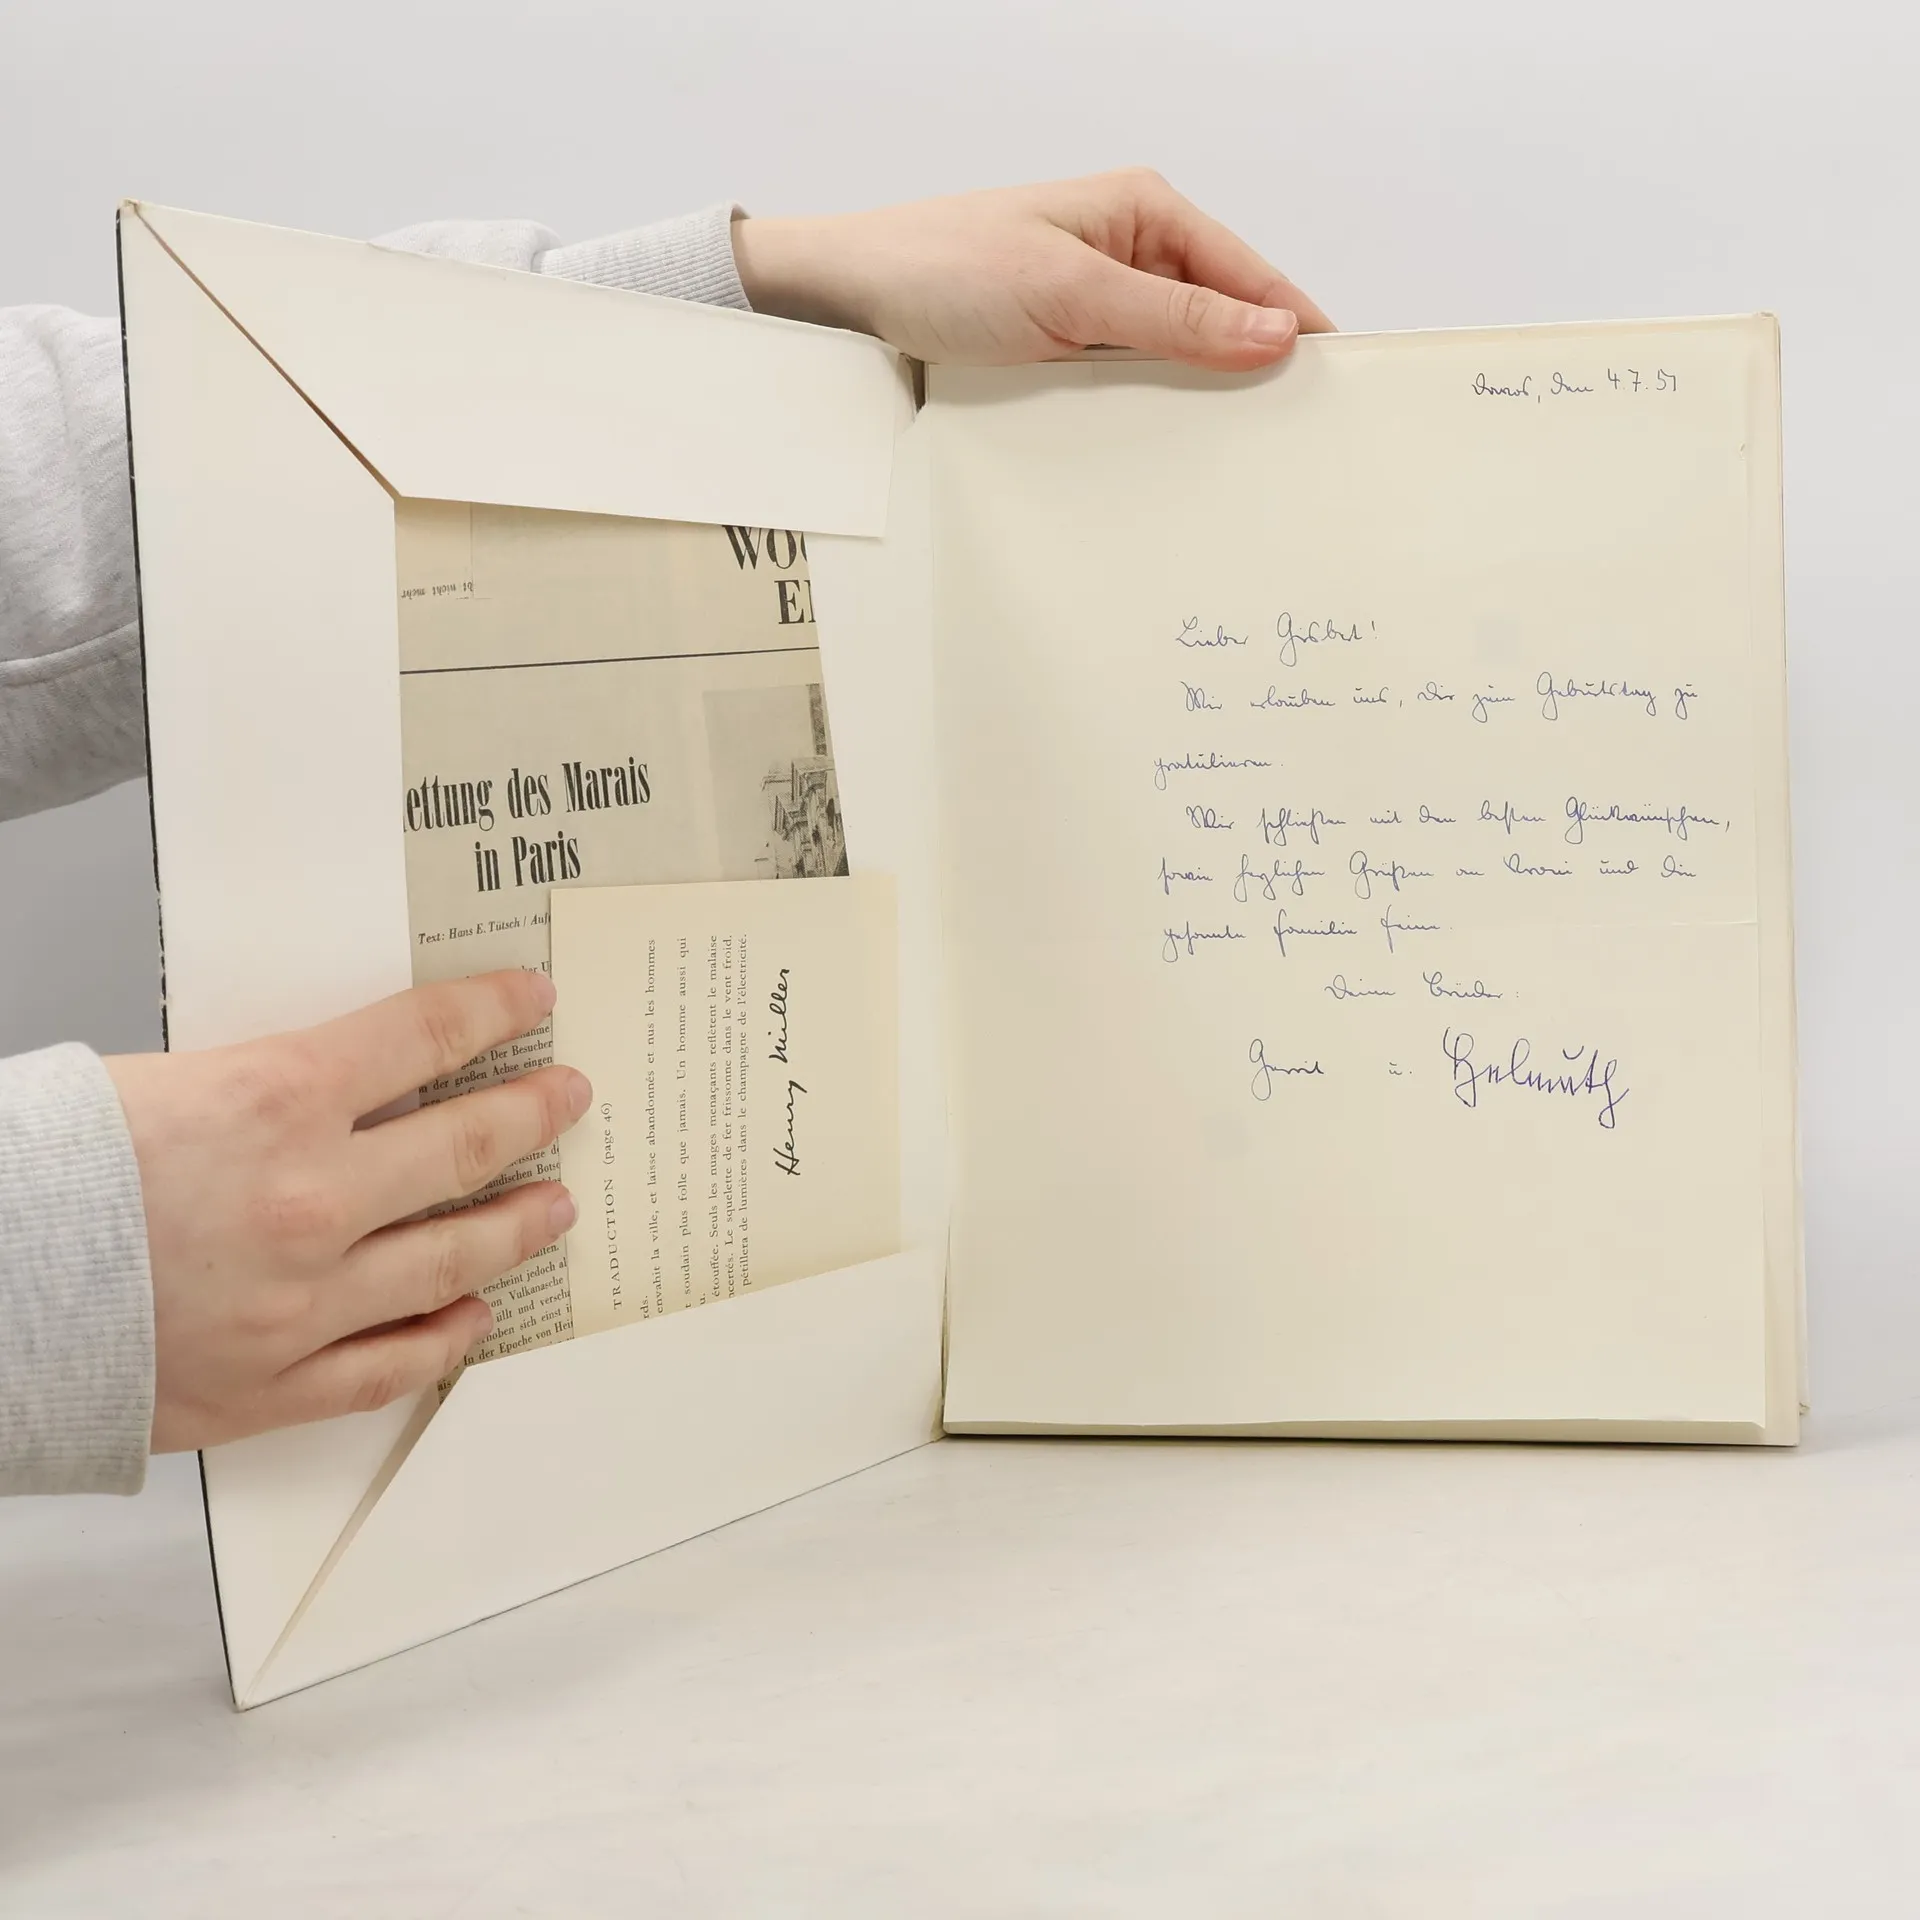 bt nicht mehr
WOC
EI
ettung des Marais
in Paris
Text: Hans E. Tütsch / Aufn
her U
nahme
Der Besucher
n der großen Achse eingen
eissitze de
ändischen Botsc
mit dem Publi
halten.
is erscheint jedoch al
on Vulkanasche
üllt und verscha
noben sich einst i
In der Epoche von Hein
TRADUCTION (page 46)
rds.
envahit la ville, et laisse abandonnés et nus les hommes
soudain plus folle que jamais. Un homme aussi qui
u.
étouffée. Seuls les nuages menaçants reflètent le malaise
ncertés. Le squelette de fer frissonne dans le vent froid.
pétillera de lumières dans le champagne de l'électricité.
Henry Miller
Davos, den 4.7.57
Lieber Gisbert!
Wir erlauben uns, Dir zum Geburtstag zu
gratulieren.
Wir schließen mit den besten Glückwünschen,
sowie herzlichen Grüßen an Vroni und die
gesamte Familie
Deine Brüder:
Gerrit u. Helmuth